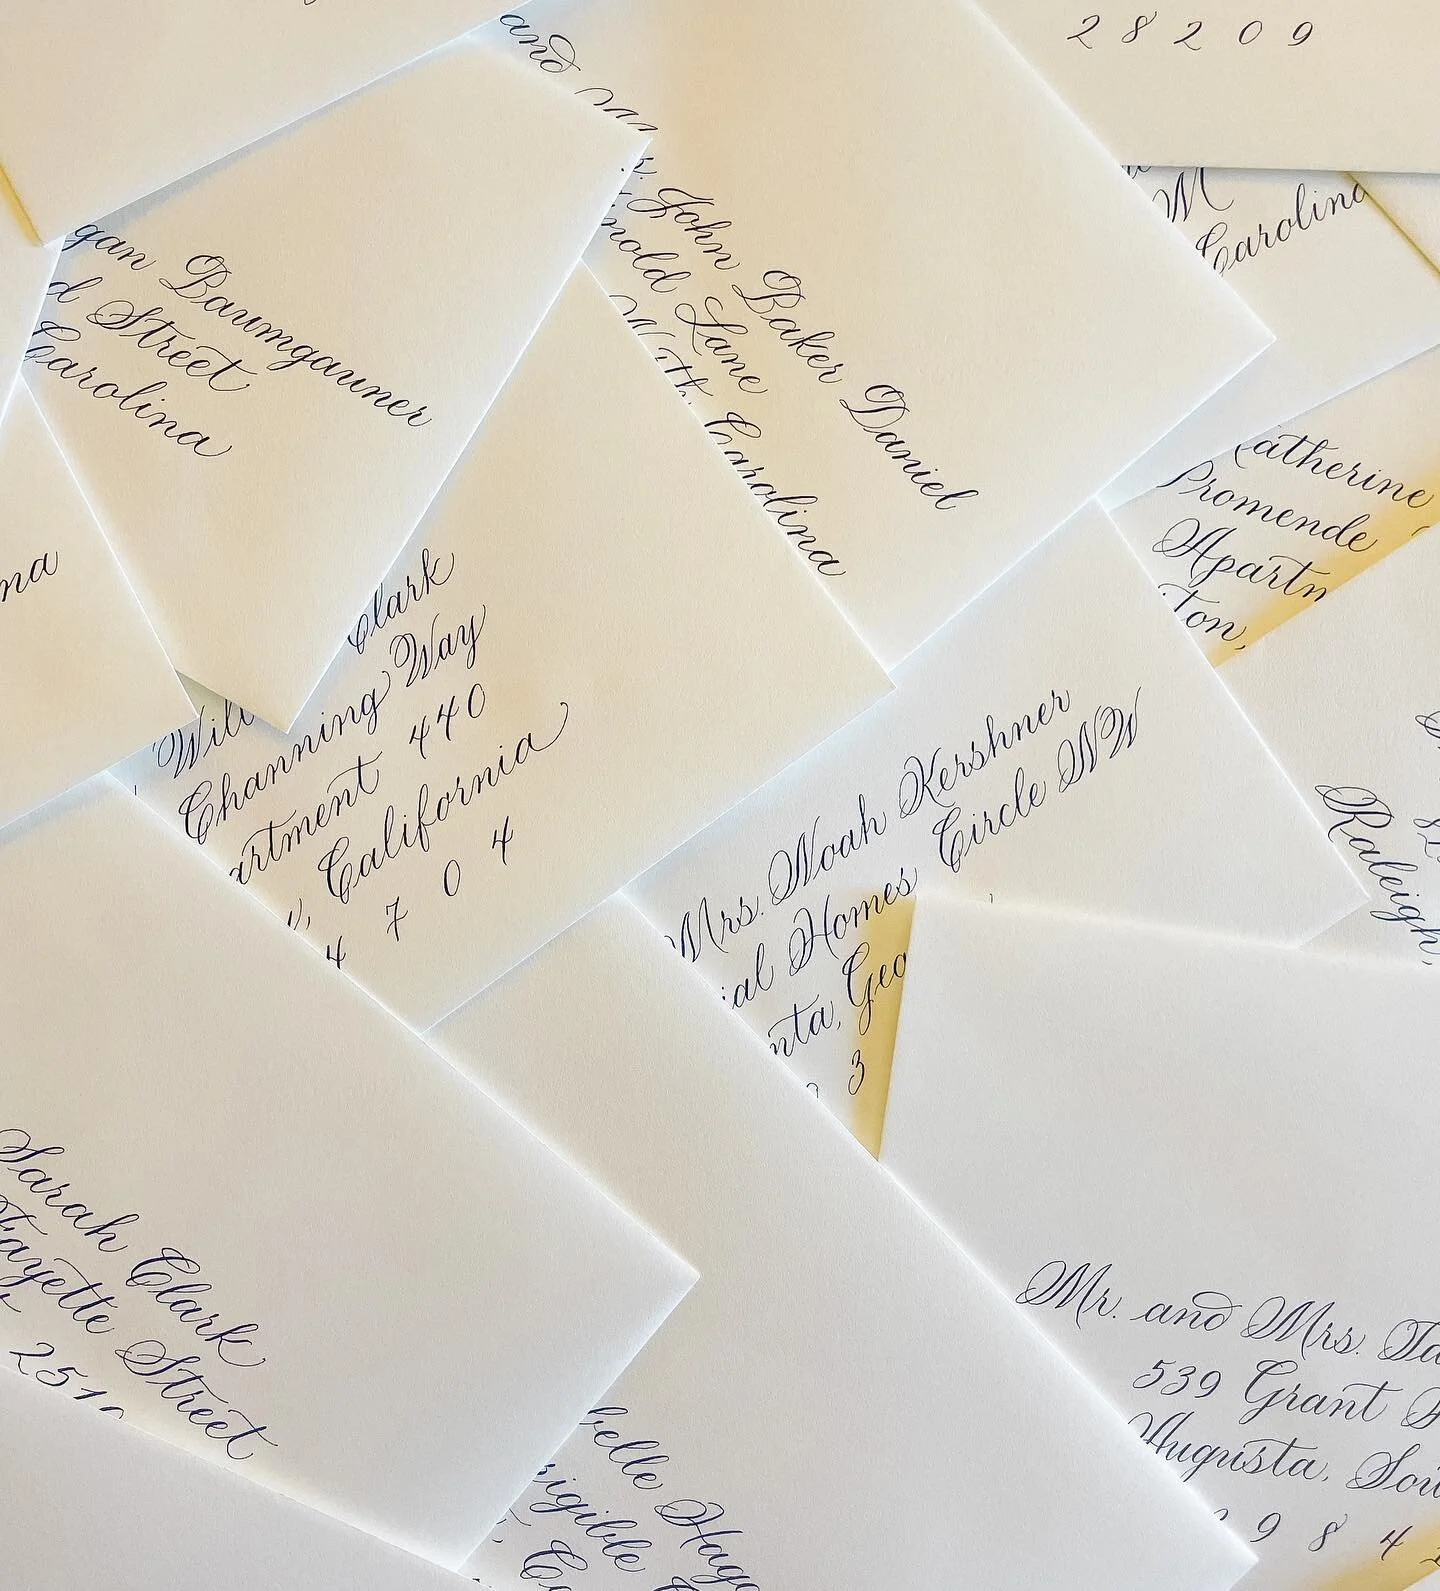 28209
and Mrs. John Baker Daniel
nold Lane
rth Carolina
M
Carolina
gan Baumgauner
d Street
Carolina
atherine
Promende
Apartm
ton,
na
Clark
Will
Channing Way
artment 440
, California
4 7 0 4
Mrs. Noah Kershner
ial Homes Circle NW
nta, Geo
3
Raleigh,
Sarah Clark
Fayette Street
251
belle Hag
rigible
Mr. and Mrs. Ta
539 Grant
Augusta, Sou
9 8 4